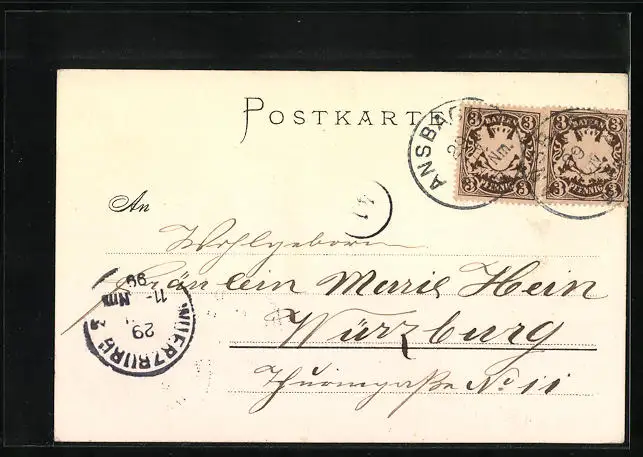 POSTKARTE
ANSBACH
29
Nm.
3 BAYERN 3
3 PFENNIG 3
3 BAYERN 3
3 PFENNIG 3
An
41
Wohlgeboren
Fräulein Marie Hein
Würzburg
Thuringaße No. 11
WUERZBURG 3
29
11-
Nm
99